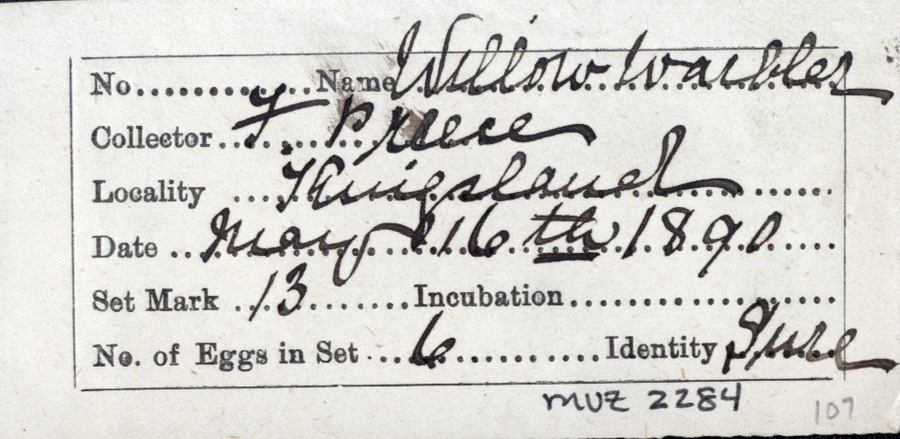 No............Name Willow Warbler
Collector.. F. Preece
Locality .... Kingsland
Date .. May 16th 1890
Set Mark .13........Incubation....................
No. of Eggs in Set ... 6 ..........Identity Sure
MVZ 2284
107